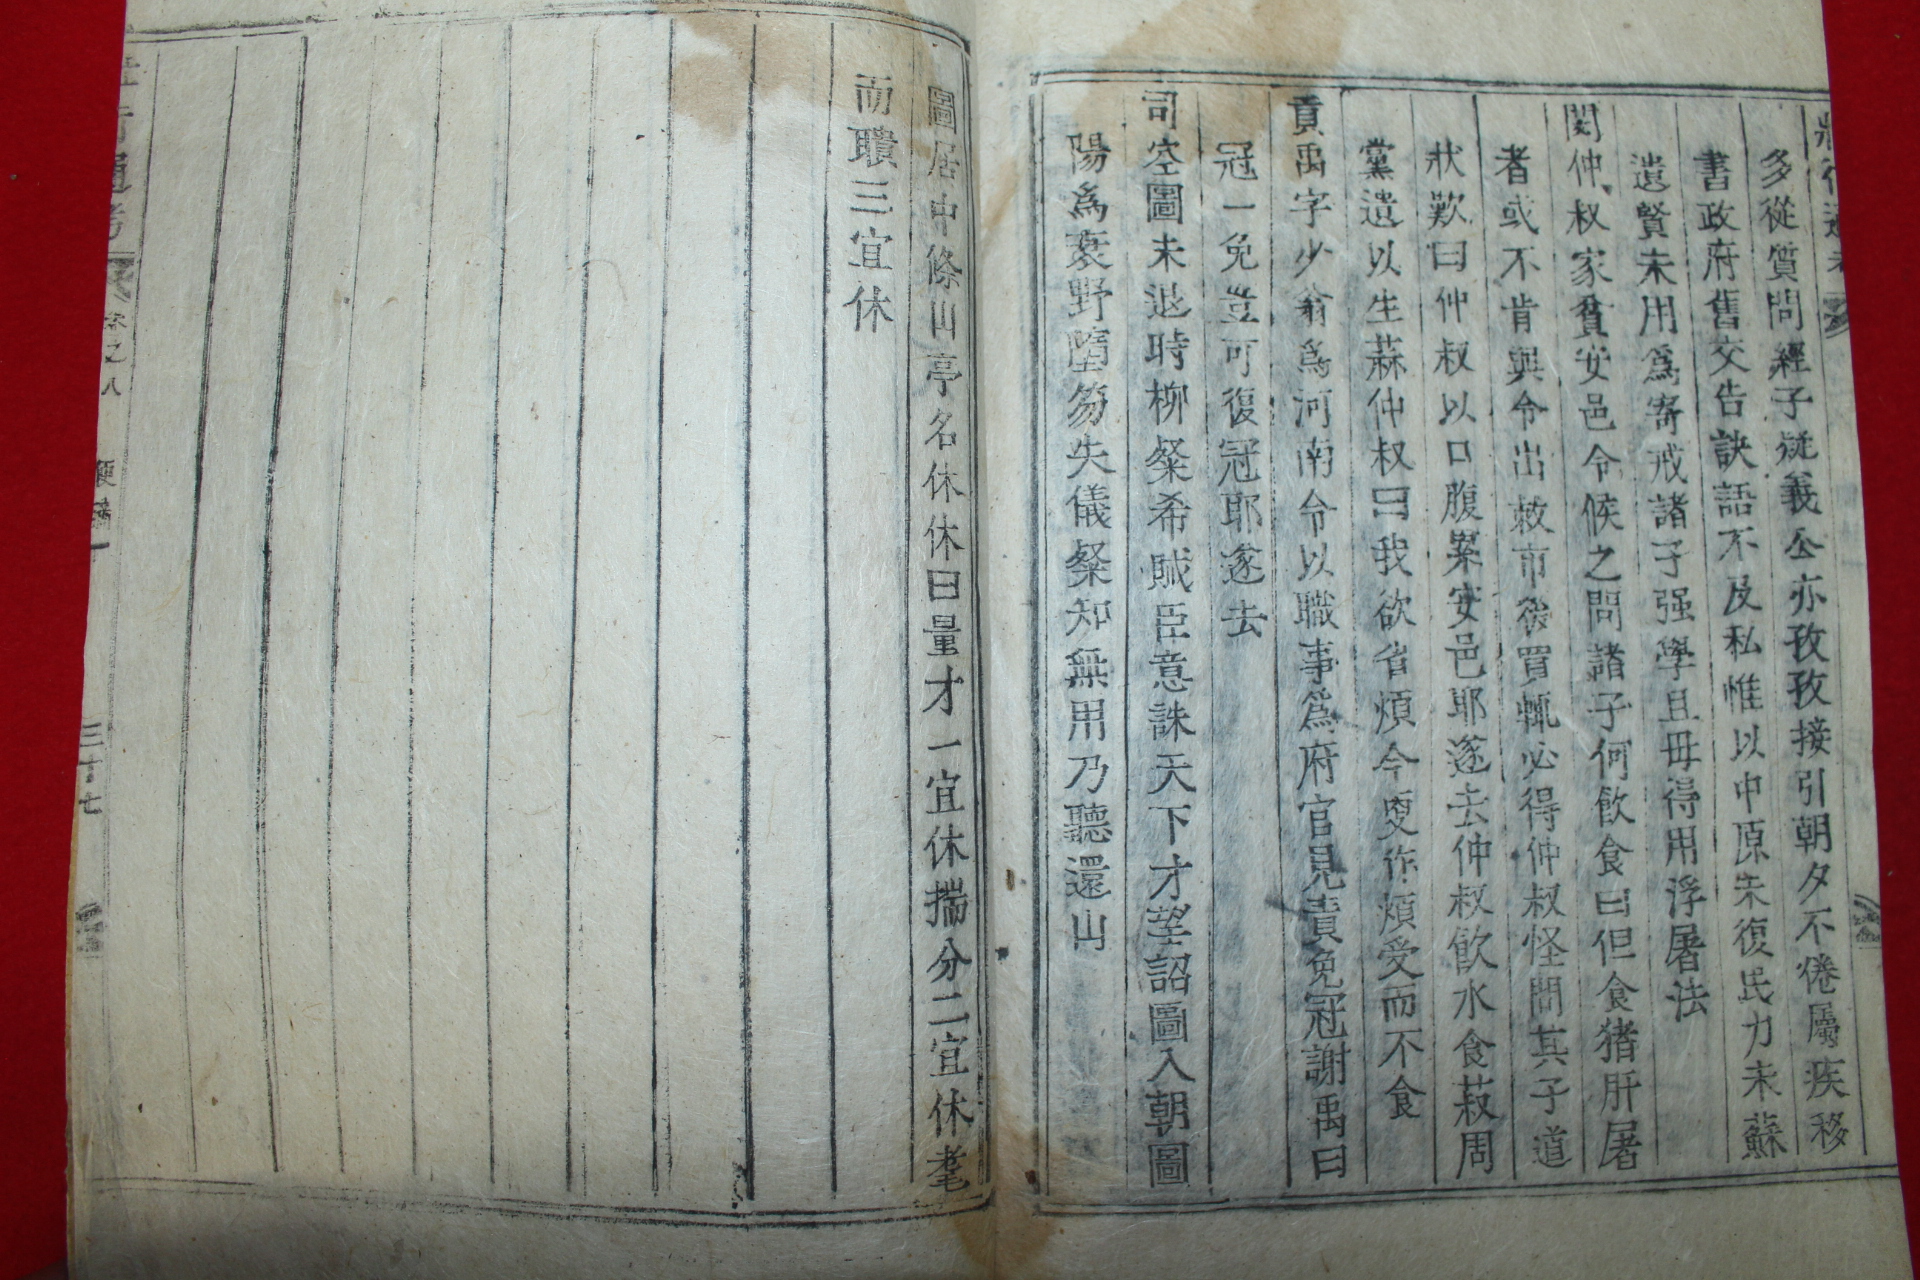 多從質問經子疑義公亦孜孜接引朝夕不倦屬疾移
書政府舊交告訣語不及私惟以中原未復民力未蘇
遺賢未用爲寄戒諸子强學且毋得用浮屠法
閔仲叔家貧安邑令候之問諸子何飮食曰但食猪肝屠
者或不肯與令出敕市後買輒必得仲叔怪問其子道
狀歎曰仲叔以口腹累安邑耶遂去仲叔飮水食菽周
黨遺以生蒜仲叔曰我欲省煩今更作煩受而不食
貢禹字少翁爲河南令以職事爲府官見責免冠謝禹曰
冠一免豈可復冠耶遂去
司空圖未退時柳粲希賊臣意誅天下才望詔圖入朝圖
陽爲衰野墮笏失儀粲知無用乃聽還山
圖居中條山亭名休休曰量才一宜休揣分二宜休耄
而聵三宜休
通考
卷之八
三十七